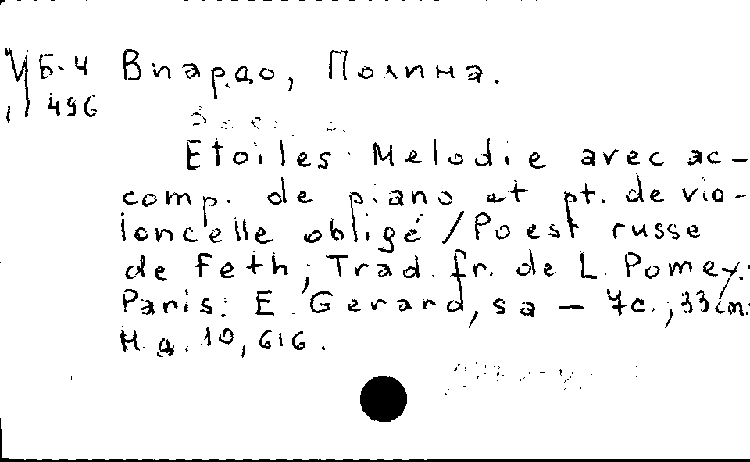 Б-4 Виардо, Полина.
496
Etoiles Melodie avec ac-
comp. de piano et pt. de vio-
loncelle obligé / Poest russe
de Feth; Trad. fr. de L. Pomey.
Paris: E. Gerard, s a – 7c.; 33cm.
Н. д. 10,616.